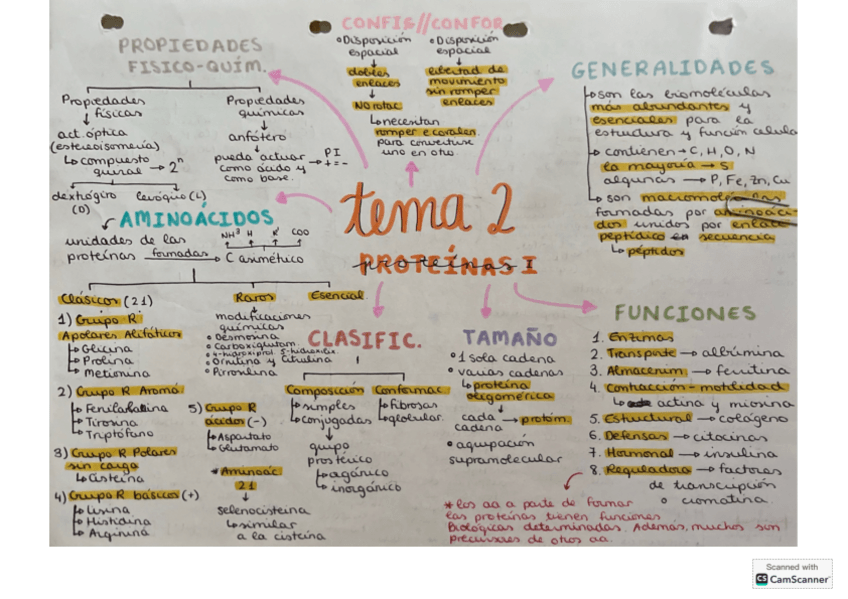 CONFIG//CONFOR
• Disposición espacial
↓
dobles enlaces
↓
No rotac
• Disposición espacial
↓
libertad de movimiento sin romper enlaces
↳ necesitan
romper e. covalen.
para convertirse
uno en otro.
PROPIEDADES
FISICO-QUÍM.
Propiedades
físicas
↓
act. óptica
(estereoisomería)
↳ compuesto
quiral → 2ⁿ
dextrógiro
(D)
levógiro (L)
Propiedades
químicas
↓
anfótero
↓
pueda actuar
como ácido y
como base.
→ PI
+ = -
GENERALIDADES
↳ son las biomoléculas
más abundantes y
esenciales para la
estructura y función celula
↳ contienen → C, H, O, N
la mayoría → S
algunas → P, Fe, Zn, Cu
↳ son macromoléculas
formadas por aminoáci-
dos unidos por enlace
peptídico en secuencia
↳ péptidos
tema 2
PROTEÍNAS I
AMINOÁCIDOS
unidades de las
proteínas formadas → C asimétrico
NH³ H R COO
Clásicos (21)
1) Grupo R
Apolares Alifáticos
↳ Glicina
↳ Prolina
↳ Metionina
2) Grupo R Aromá.
↳ Fenilalalina
↳ Tirosina
↳ Triptófano
3) Grupo R Polares
sin carga
↳ Cisteína
4) Grupo R básicos (+)
↳ Lisina
↳ Histidina
↳ Arginina
5) Grupo R
ácidos (-)
↳ Aspartato
↳ Glutamato
* Aminoác
21
↓
selenocisteina
↳ similar
a la cisteína
Raros
modificaciones
químicas
• Desmosina
• Carboxiglutam.
• 4-hidroxiprol 5-hidroxilis.
• Ornitina y citrulina
• Pirrolisina
Esencial
CLASIFIC.
Composición
↳ simples
↳ conjugadas
↓
grupo
prostético
↳ orgánico
↳ inorgánico
Conformac
↳ fibrosas
↳ globular.
TAMAÑO
• 1 sola cadena
• varias cadenas
↳ proteína
oligomérica
↓
cada → protóm.
cadena
• agrupación
supramolecular
FUNCIONES
1. Enzimas
2. Transporte → albúmina
3. Almacenim → ferritina
4. Contracción-motilidad
↳ actina y miosina
5. Estructural → colágeno
6. Defensas → citocinas
7. Hormonal → insulina
8. Reguladora → factores
de transcripción
o cromatina.
* los aa a parte de formar
las proteínas tienen funciones
biológicas determinadas. Además, muchos son
precursores de otros aa.
Scanned with
CS CamScanner